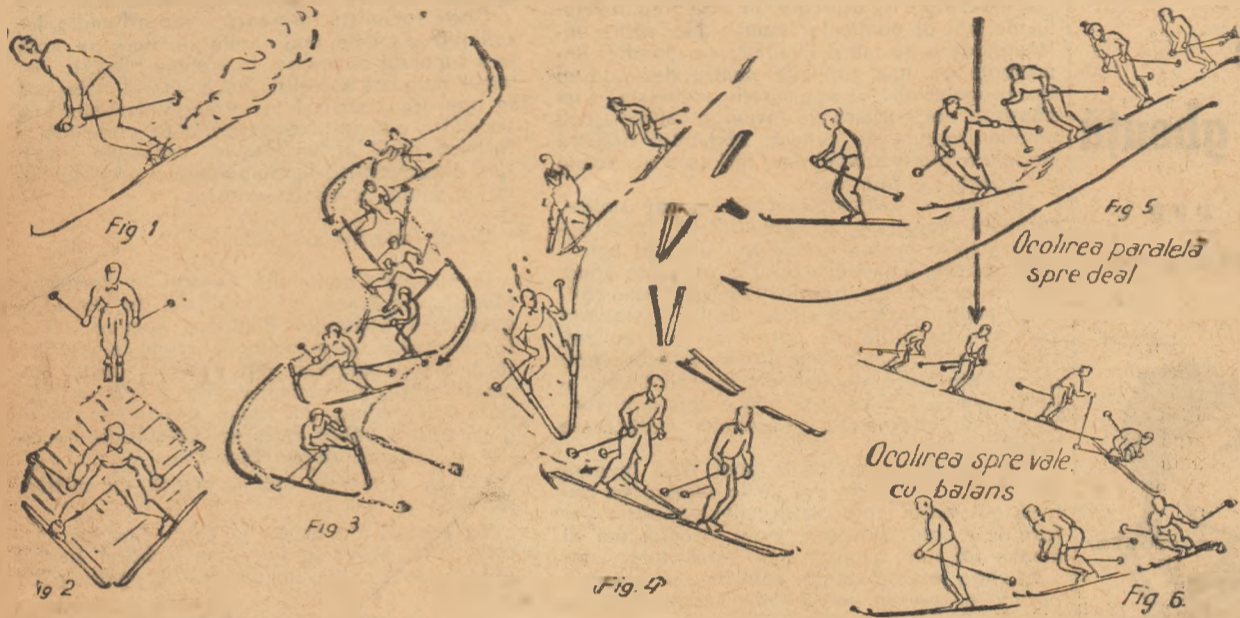 Fig 1
Fig 3
Fig. 4
Fig 5
Ocolirea paralelă
spre deal
Ocolirea spre vale
cu balans
Fig 6.
ig 2